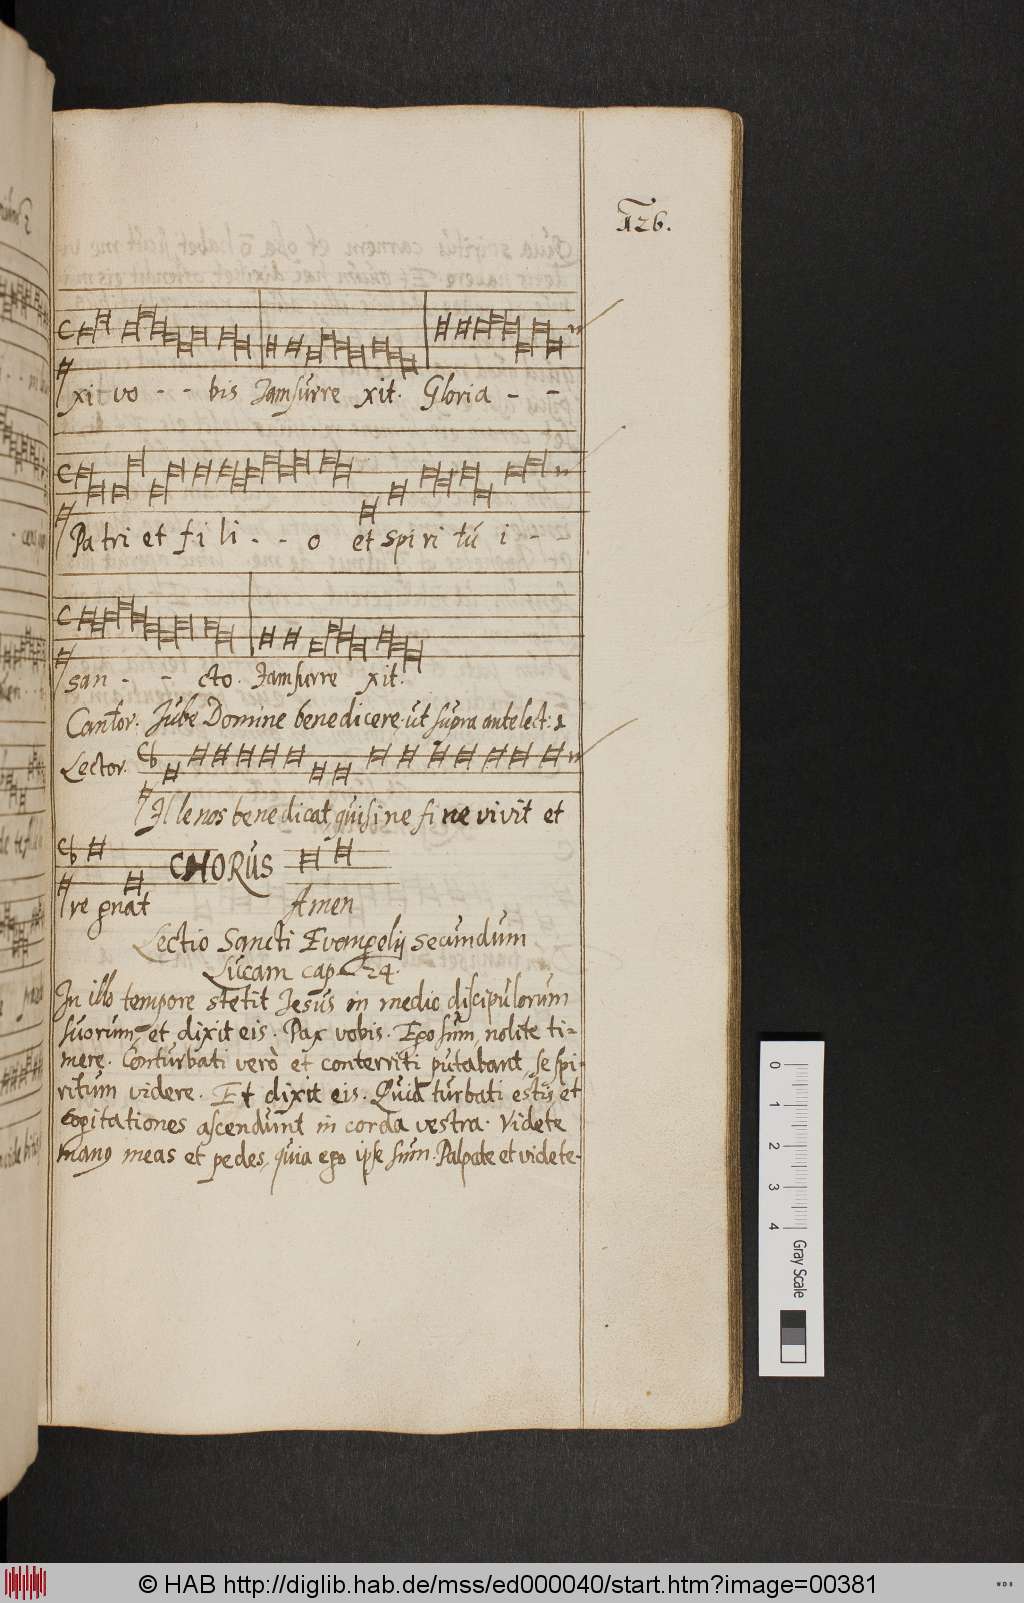 126.
xi vo - - bis Jam surre xit. Gloria - -
Patri et fi li - - o et spi ri tu i - -
san - - cto. Jam surre xit.
Cantor. Jube Domine benedicere. ut supra ante lect: 1
Lector.
Ille nos benedicat qui sine fine vivit et
CHORUS
regnat Amen
Lectio Sancti Evangelij secundum
Lucam cap 24.
In illo tempore stetit Jesus in medio discipulorum
suorum, et dixit eis. Pax vobis. Ego sum, nolite ti=
mere. Conturbati verò et conterriti putabant, se spi-
ritum videre. Et dixit eis. Quid turbati estis et
cogitationes ascendunt in corda vestra. Videte
meas et pedes, quia ego ipse sum. Palpate et videte-
© HAB http://diglib.hab.de/mss/ed000040/start.htm?image=00381
0 1 2 3 4 Gray Scale